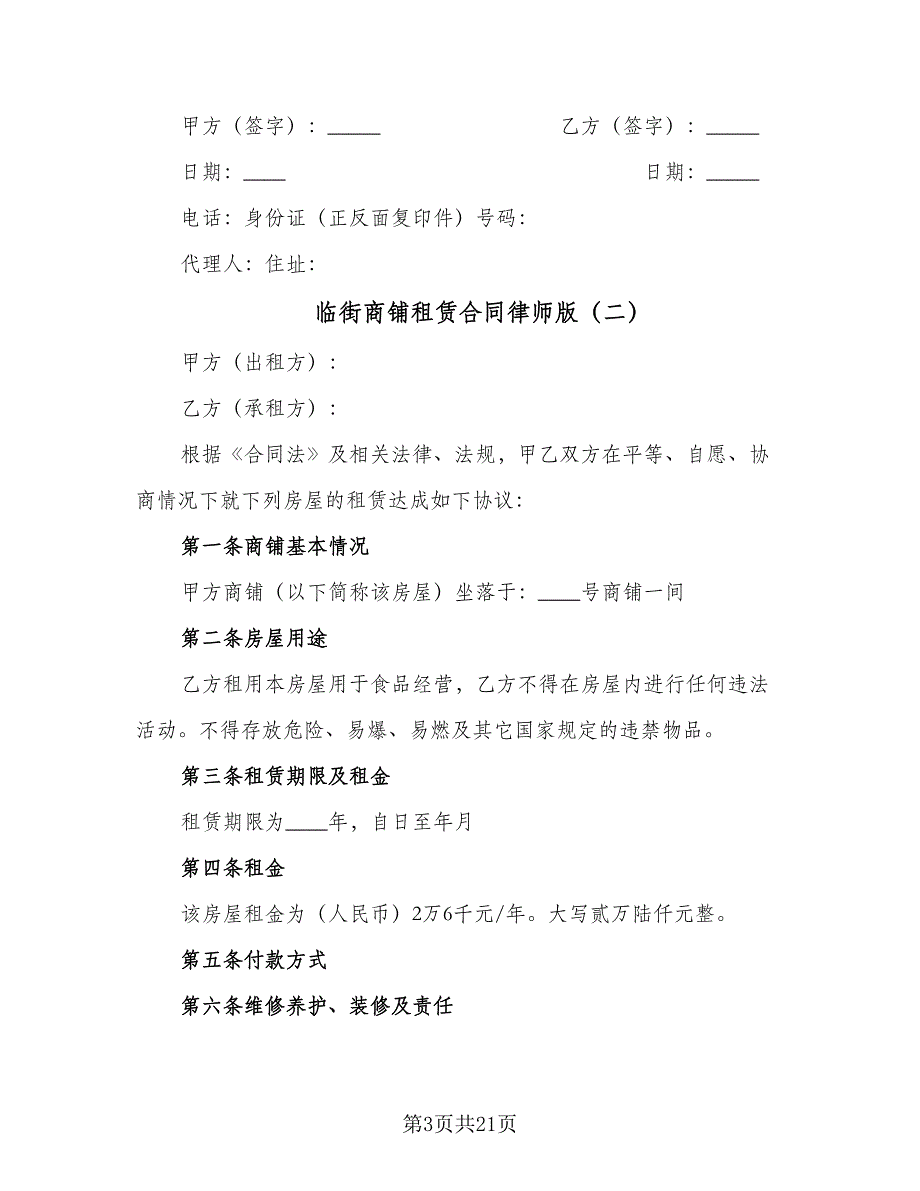 甲方（签字）：_____ 乙方（签字）：_____
日期：____ 日期：_____
电话：身份证（正反面复印件）号码：
代理人：住址：
临街商铺租赁合同律师版（二）
甲方（出租方）：
乙方（承租方）：
根据《合同法》及相关法律、法规，甲乙双方在平等、自愿、协
商情况下就下列房屋的租赁达成如下协议：
第一条商铺基本情况
甲方商铺（以下简称该房屋）坐落于：____号商铺一间
第二条房屋用途
乙方租用本房屋用于食品经营，乙方不得在房屋内进行任何违法
活动。不得存放危险、易爆、易燃及其它国家规定的违禁物品。
第三条租赁期限及租金
租赁期限为____年，自日至年月
第四条租金
该房屋租金为（人民币）2万6千元/年。大写贰万陆仟元整。
第五条付款方式
第六条维修养护、装修及责任
第3页共21页